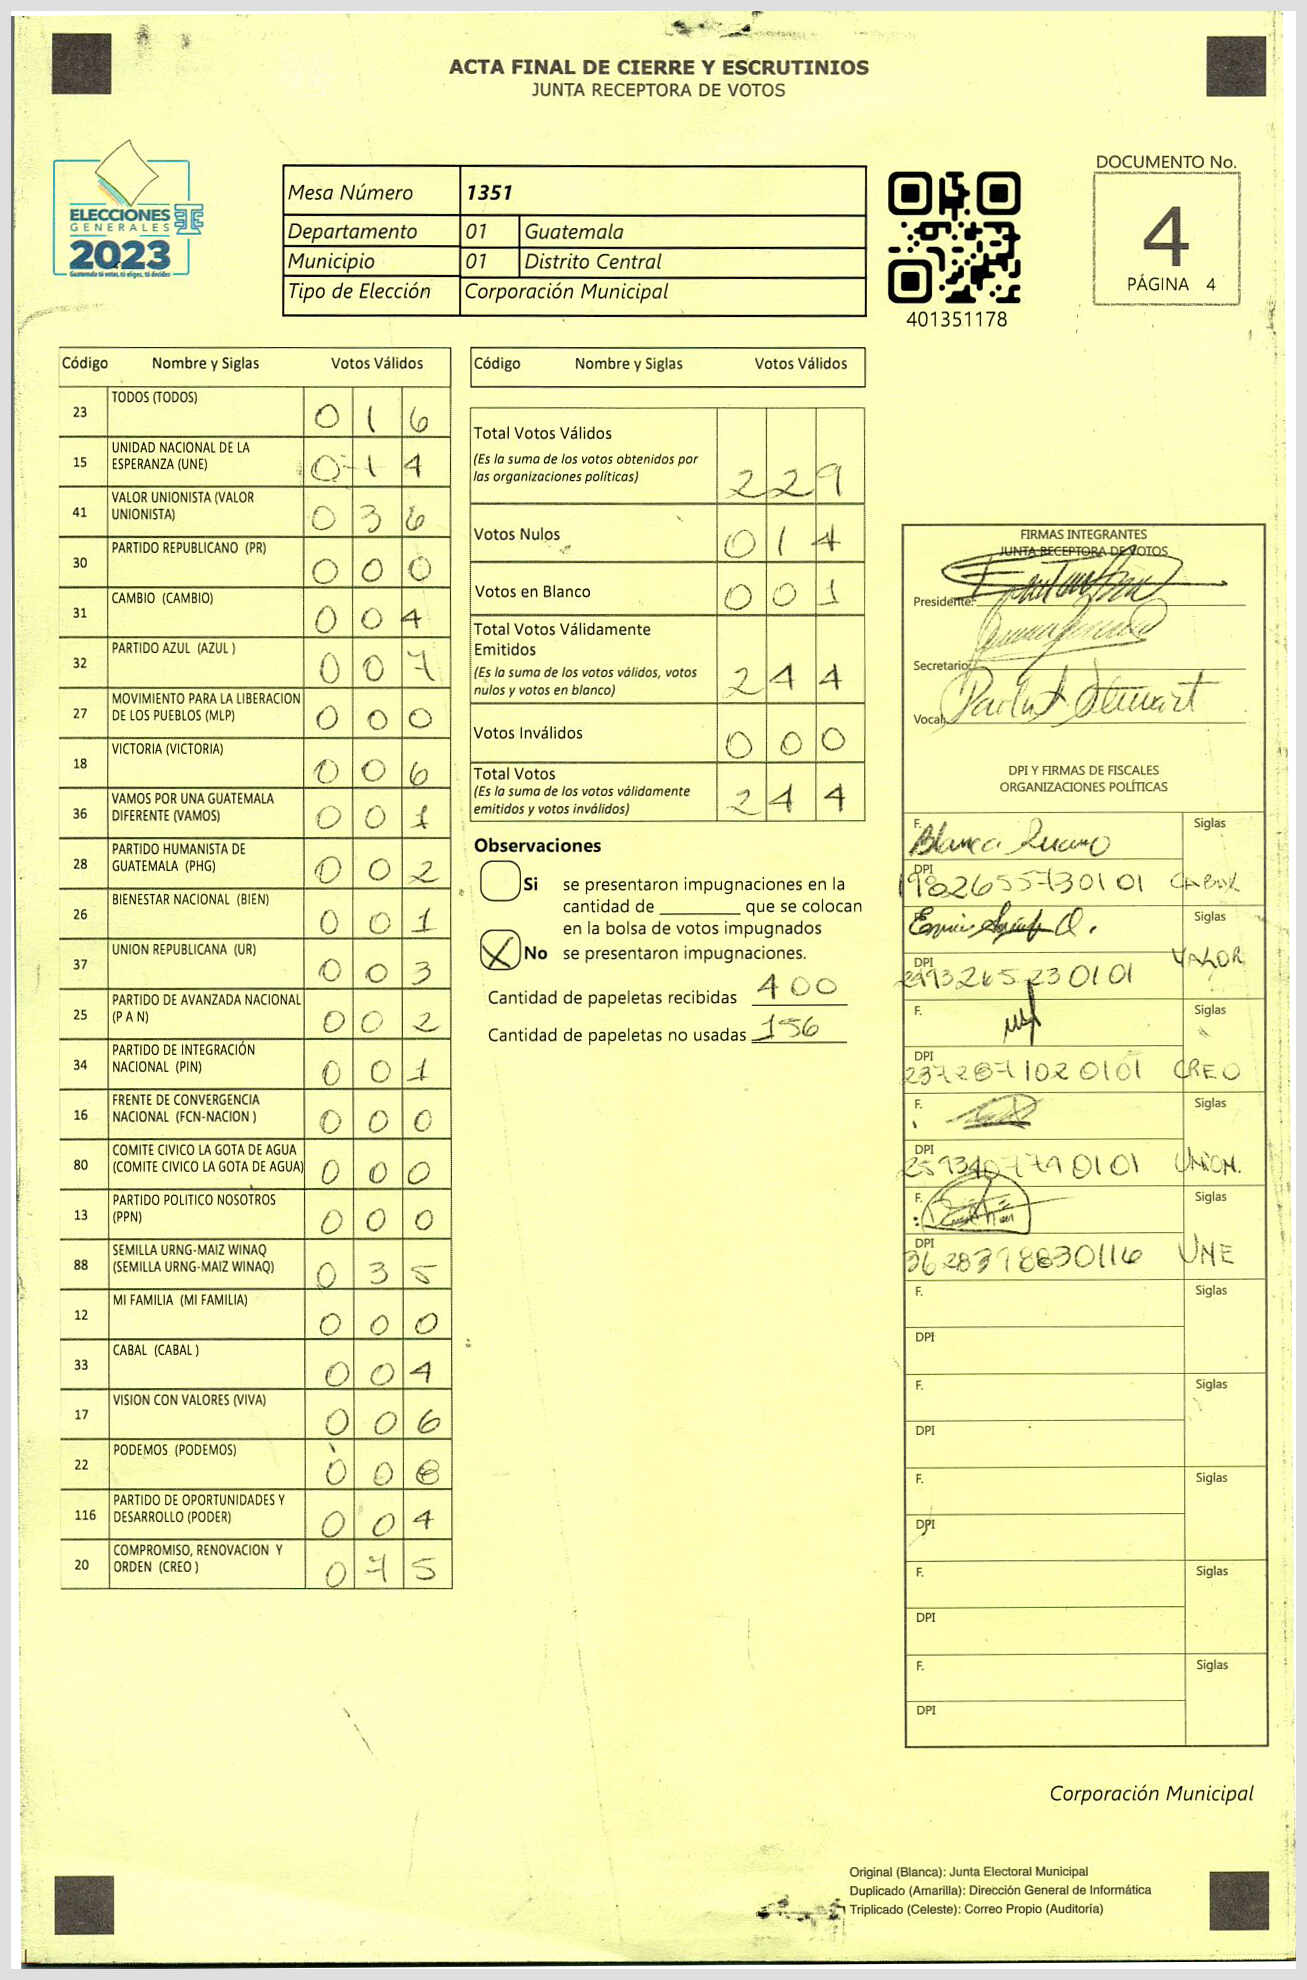 ACTA FINAL DE CIERRE Y ESCRUTINIOS
JUNTA RECEPTORA DE VOTOS
ELECCIONES
GENERALES
2023
Guatemala tú votas, tú eliges, tú decides
Mesa Número 1351
Departamento 01 Guatemala
Municipio 01 Distrito Central
Tipo de Elección Corporación Municipal
401351178
DOCUMENTO No.
4
PÁGINA 4
Código Nombre y Siglas Votos Válidos
23 TODOS (TODOS) 0 1 6
15 UNIDAD NACIONAL DE LA
ESPERANZA (UNE) 0 1 4
41 VALOR UNIONISTA (VALOR
UNIONISTA) 0 3 6
30 PARTIDO REPUBLICANO (PR) 0 0 0
31 CAMBIO (CAMBIO) 0 0 4
32 PARTIDO AZUL (AZUL ) 0 0 7
27 MOVIMIENTO PARA LA LIBERACION
DE LOS PUEBLOS (MLP) 0 0 0
18 VICTORIA (VICTORIA) 0 0 6
36 VAMOS POR UNA GUATEMALA
DIFERENTE (VAMOS) 0 0 1
28 PARTIDO HUMANISTA DE
GUATEMALA (PHG) 0 0 2
26 BIENESTAR NACIONAL (BIEN) 0 0 1
37 UNION REPUBLICANA (UR) 0 0 3
25 PARTIDO DE AVANZADA NACIONAL
(P A N) 0 0 2
34 PARTIDO DE INTEGRACIÓN
NACIONAL (PIN) 0 0 1
16 FRENTE DE CONVERGENCIA
NACIONAL (FCN-NACION ) 0 0 0
80 COMITE CIVICO LA GOTA DE AGUA
(COMITE CIVICO LA GOTA DE AGUA) 0 0 0
13 PARTIDO POLITICO NOSOTROS
(PPN) 0 0 0
88 SEMILLA URNG-MAIZ WINAQ
(SEMILLA URNG-MAIZ WINAQ) 0 3 5
12 MI FAMILIA (MI FAMILIA) 0 0 0
33 CABAL (CABAL ) 0 0 4
17 VISION CON VALORES (VIVA) 0 0 6
22 PODEMOS (PODEMOS) 0 0 8
116 PARTIDO DE OPORTUNIDADES Y
DESARROLLO (PODER) 0 0 4
20 COMPROMISO, RENOVACION Y
ORDEN (CREO ) 0 7 5
Código Nombre y Siglas Votos Válidos
Total Votos Válidos
(Es la suma de los votos obtenidos por
las organizaciones políticas) 2 2 9
Votos Nulos 0 1 4
Votos en Blanco 0 0 1
Total Votos Válidamente
Emitidos
(Es la suma de los votos válidos, votos
nulos y votos en blanco) 2 4 4
Votos Inválidos 0 0 0
Total Votos
(Es la suma de los votos válidamente
emitidos y votos inválidos) 2 4 4
Observaciones
Si se presentaron impugnaciones en la
cantidad de ________ que se colocan
en la bolsa de votos impugnados
X No se presentaron impugnaciones.
Cantidad de papeletas recibidas 400
Cantidad de papeletas no usadas 156
FIRMAS INTEGRANTES
JUNTA RECEPTORA DE VOTOS
Presidente:
Secretario:
Vocal:
DPI Y FIRMAS DE FISCALES
ORGANIZACIONES POLÍTICAS
F. Blanca Siglas
DPI CABAL
F. Siglas
DPI VALOR
F. Siglas
DPI CREO
F. Siglas
DPI UNION.
F. Siglas
DPI UNE
F. Siglas
DPI
F. Siglas
DPI
F. Siglas
DPI
F. Siglas
DPI
F. Siglas
DPI
Corporación Municipal
Original (Blanca): Junta Electoral Municipal
Duplicado (Amarilla): Dirección General de Informática
Triplicado (Celeste): Correo Propio (Auditoría)